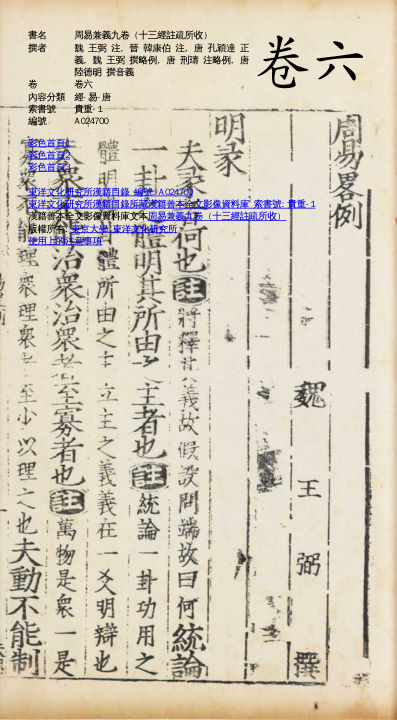 書名　周易兼義九卷（十三經註疏所收）
撰者　魏 王弼 注, 晉 韓康伯 注, 唐 孔穎達 正
義, 魏 王弼 撰略例, 唐 刑璹 注略例, 唐
陸德明 撰音義
卷　卷六
內容分類　經-易-唐
索書號　貴重-1
編號　A024700
卷六
彩色首頁1
彩色首頁2
彩色首頁3
東洋文化研究所漢籍目錄 編號: A024700
東洋文化研究所漢籍目錄所藏漢籍善本全文影像資料庫 索書號: 貴重-1
漢籍善本全文影像資料庫文本周易兼義九卷（十三經註疏所收）
版權所有: 東京大學 東洋文化研究所
使用上的注意事項
周易畧例
魏 王 弼 撰
明彖
夫彖者何也註將釋其義故假設問端故曰何統論
一卦之體明其所由之主者也註統論一卦功用之
體明 體所由之主立主之義義在一爻明辯也
夫衆不能治衆治衆者至寡者也註萬物是衆一是
寡衆不能理衆理衆者至少以理之也夫動不能制